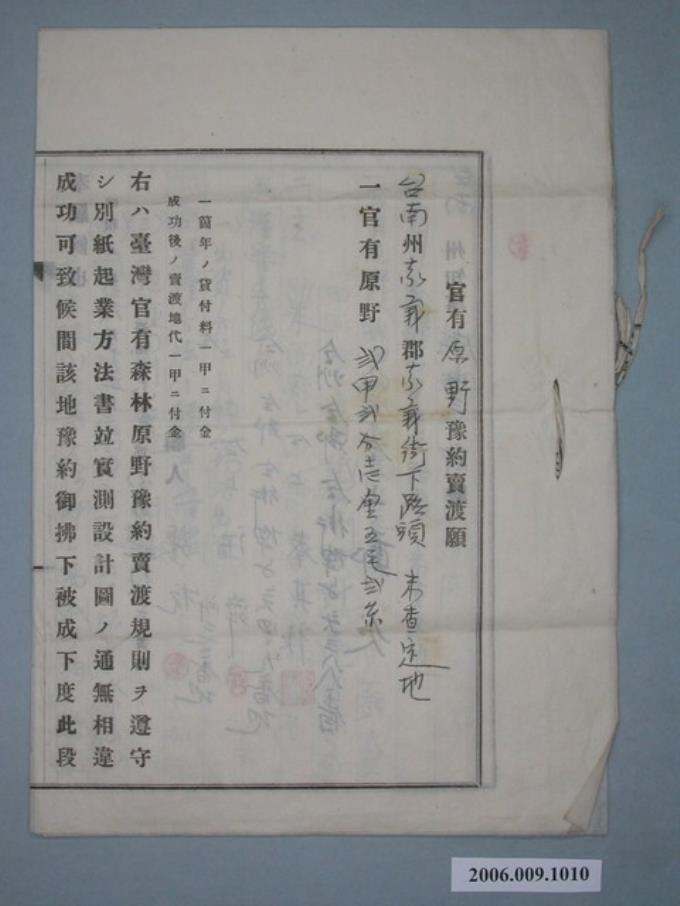 官有原野豫約賣渡願
台南州嘉義郡嘉義街下路頭 未査定地
一官有原野 弐甲弐分壱厘五毛弐糸
一箇年ノ貸付料一甲ニ付金
成功後ノ賣渡地代一甲ニ付金
右ハ臺灣官有森林原野豫約賣渡規則ヲ遵守
シ別紙起業方法書竝實測設計圖ノ通無相違
成功可致候間該地豫約御拂下被成下度此段
2006.009.1010